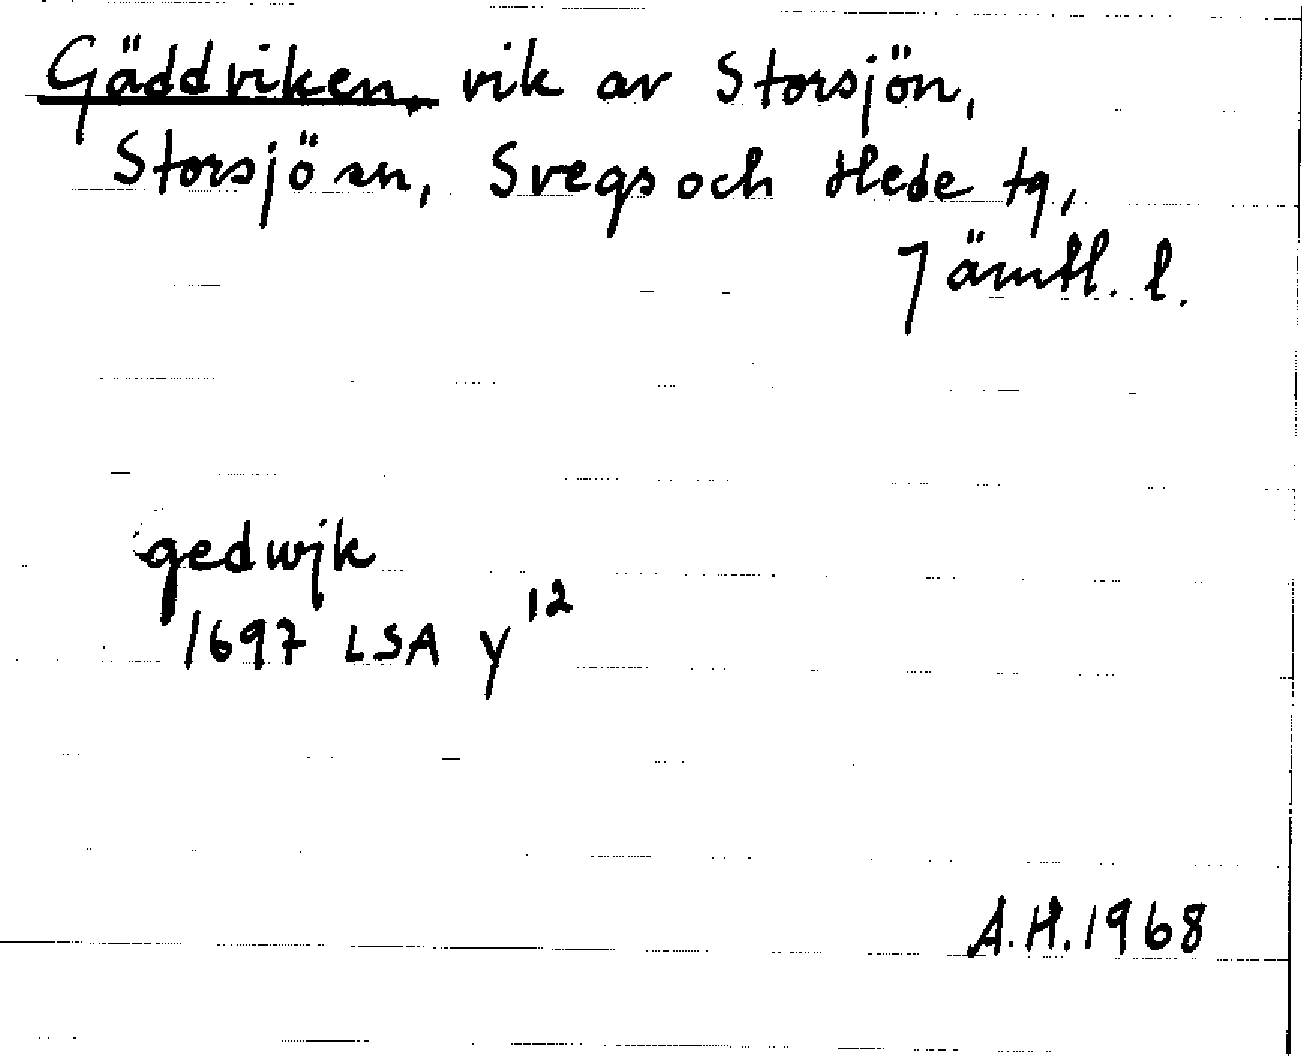 Gäddviken, vik av Storsjön,
Storsjö sn, Svegs och Hede tg,
Jämtl. l.
gedwjk
1697 LSA y¹²
A.H. 1968